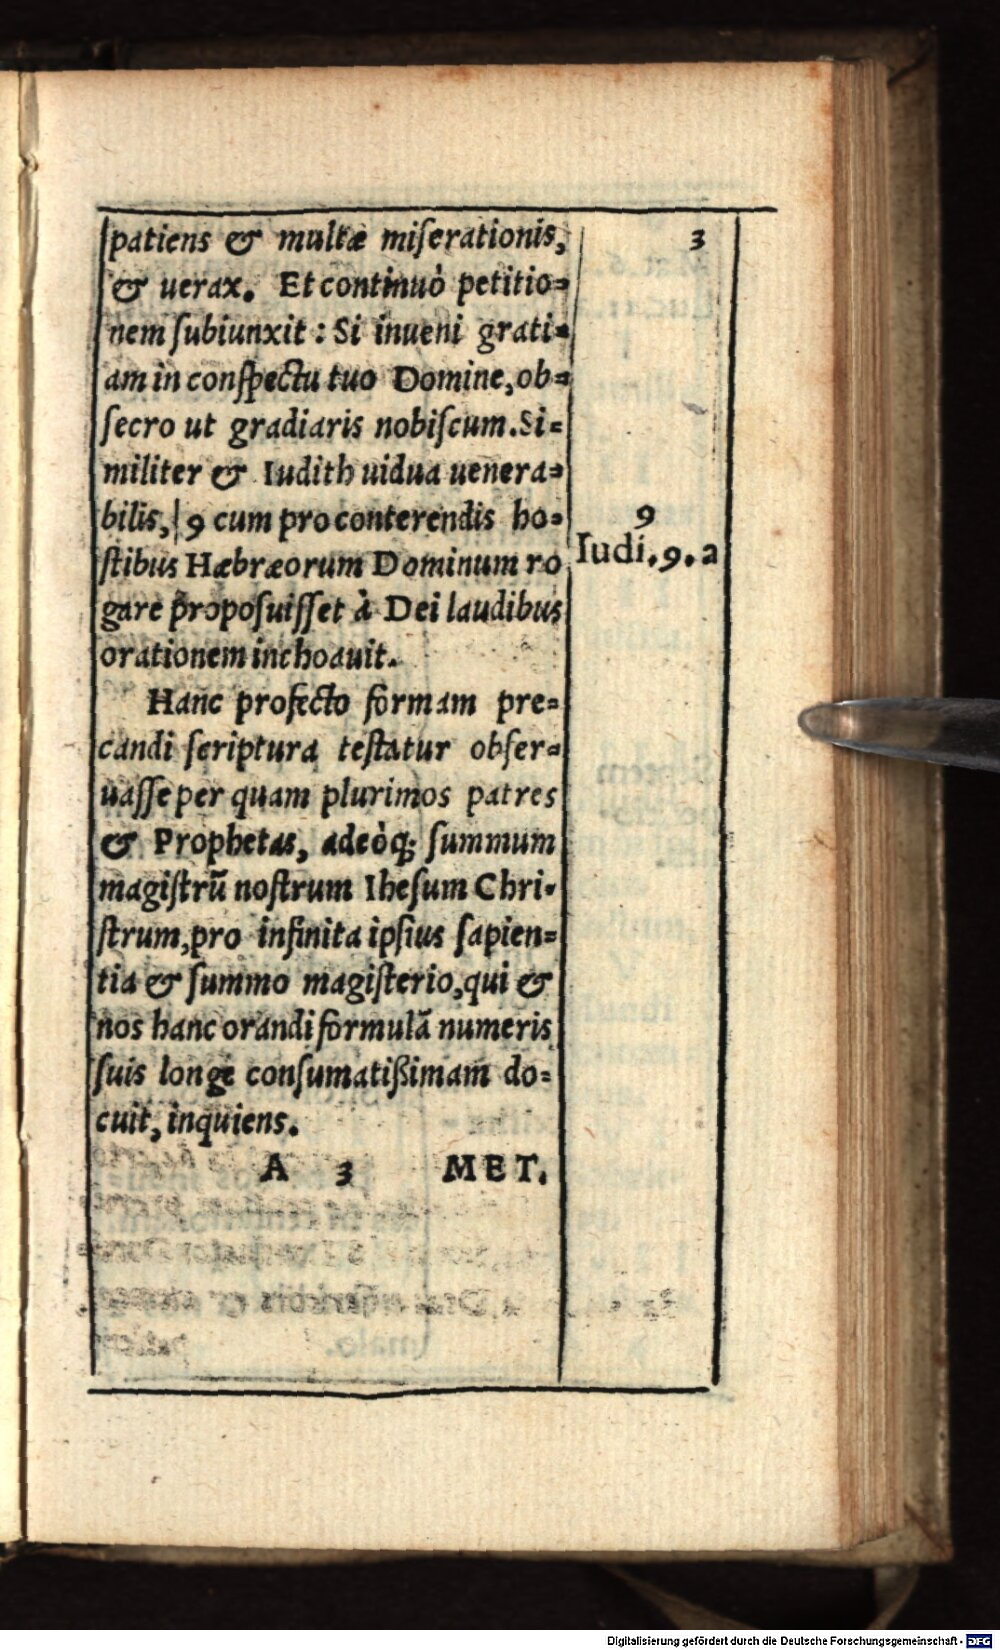 3
patiens & multæ miſerationis,
& uerax. Et continuò petitio=
nem ſubiunxit : Si inueni grati=
am in conſpectu tuo Domine, ob=
ſecro ut gradiaris nobiſcum. Si=
militer & Iudith uidua uenera=
bilis, | 9 cum pro conterendis ho=
ſtibus Hæbræorum Dominum ro
gare propoſuiſſet à Dei laudibus
orationem inchoauit.
9
Iudi. 9. a
Hanc profecto formam pre=
candi ſcriptura teſtatur obſer=
uaſſe per quam plurimos patres
& Prophetas, adeòq; ſummum
magiſtrũ noſtrum Iheſum Chri=
ſtrum, pro infinita ipſius ſapien=
tia & ſummo magiſterio, qui &
nos hanc orandi formulã numeris
ſuis longè conſumatißimam do=
cuit, inquiens.
A 3 MET.
Digitalisierung gefördert durch die Deutsche Forschungsgemeinschaft - DFG